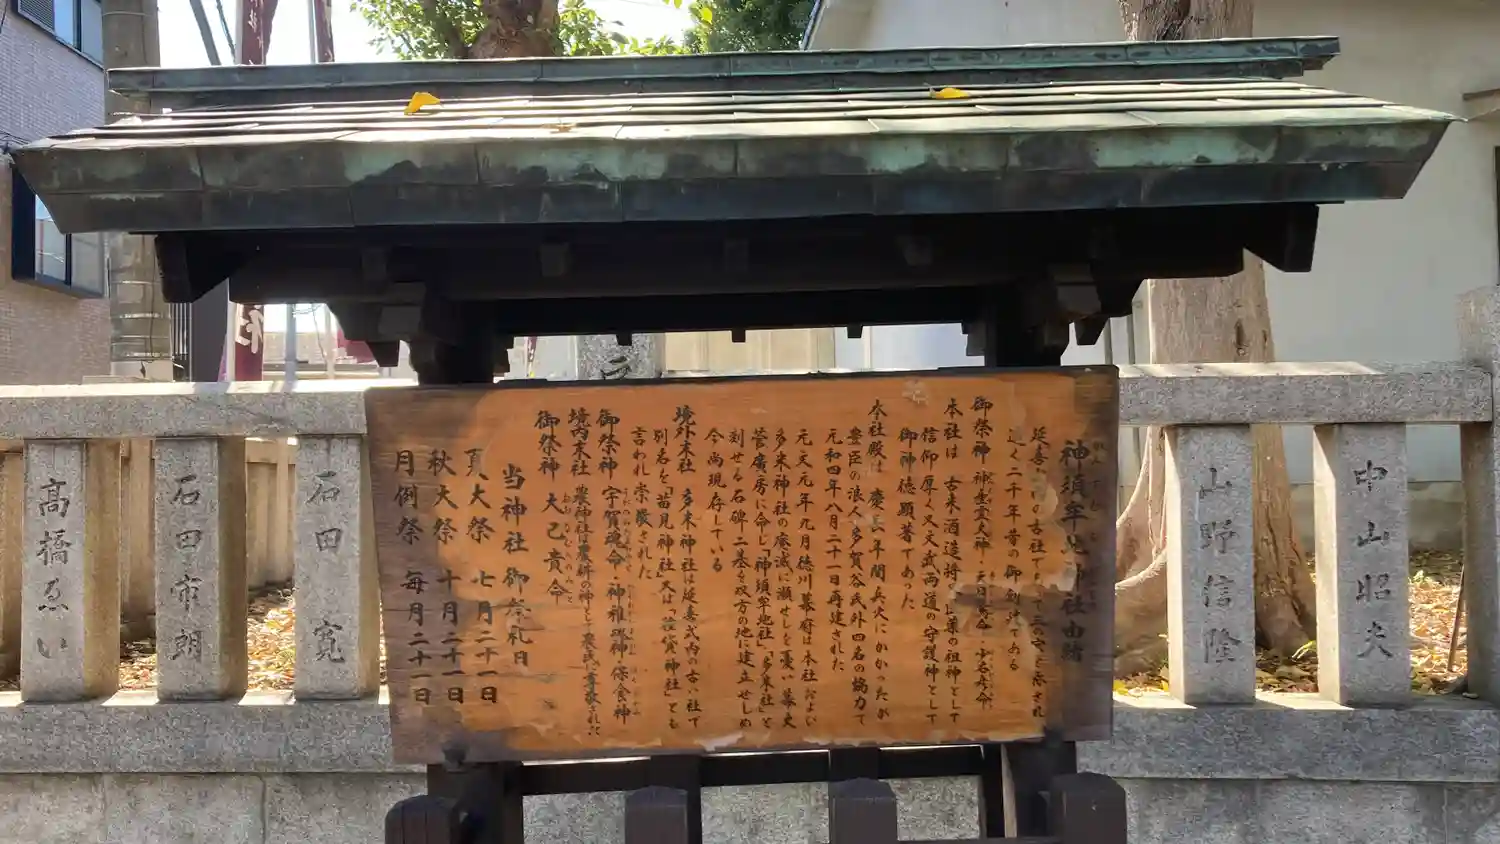 神須牟地神社由緒
延喜式内の古社であって三の宮と称され
遠く二千年昔の御創建である
御祭神 神産霊大神・天日鷲命・少名彦命
本社は古来酒造将医薬の祖神として
信仰厚く又文武両道の守護神として
御神徳顕著であった
本社殿は慶長年間兵火にかかったが
豊臣の浪人多賀谷氏外四名の協力で
元和四年八月二十一日再建された
元文元年九月徳川幕府は本社および
多米神社の衰滅に瀕せしを憂い幕吏
菅廣房に命じ「神須牟地社」「多米社」と
刻せる石碑二基を双方の地に建立せしめ
今尚現存している
境外末社 多米神社は延喜式内の古い社で
別名を「苗見神社」又は「稲貸神社」とも
言われ崇敬された
御祭神 宇賀魂命・神稚𦜝神・保食神
境内末社 農神社は農耕の神として農民に尊敬された
御祭神 大己貴命
当神社御祭礼日
夏大祭 七月二十一日
秋大祭 十月二十一日
月例祭 毎月二十一日
中山昭夫
山野信隆
石田 寛
石田市朗
髙橋ゑい
社